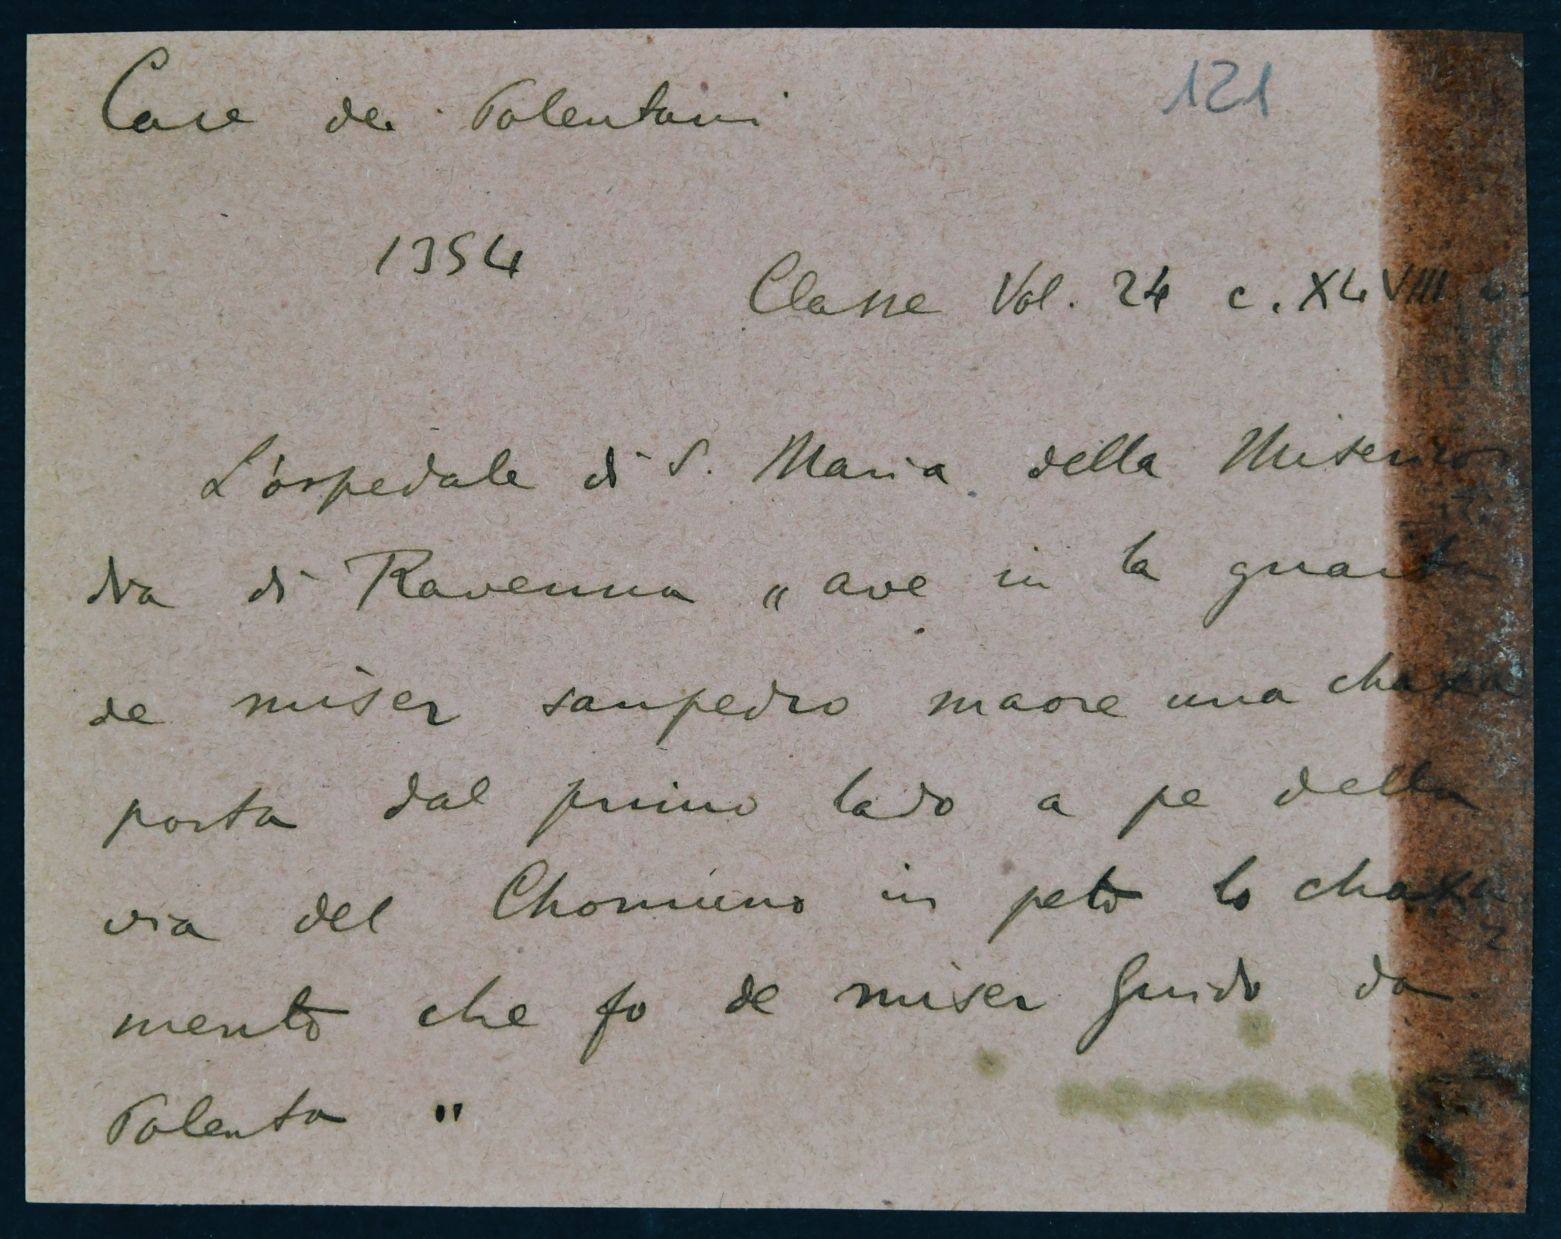 Case dei Polentani 121
1354
Classe Vol. 24 c. XLVIII
L'ospedale di S. Maria della Misericor
dia di Ravenna "ave in la guaita
de miser sanpedro maore una chaxa
posta dal primo lado a pe della
via del Chomuno in peto lo chaxa
mento che fo de miser Guido da
Polenta "